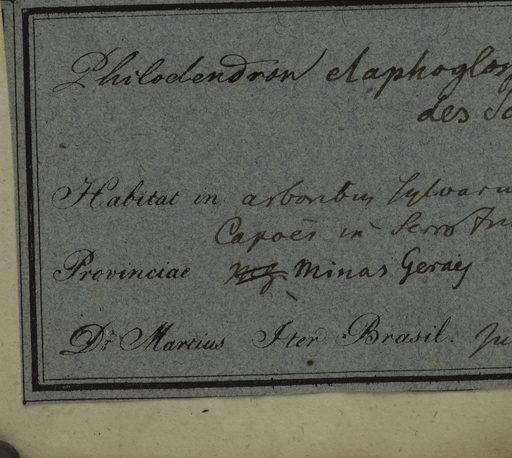 Philodendron elaphoglos
des
Habitat in arboribus sylvaru
Capoës in Serro
Provinciae Minas Geraës
Dr. Martius Iter Brasil.